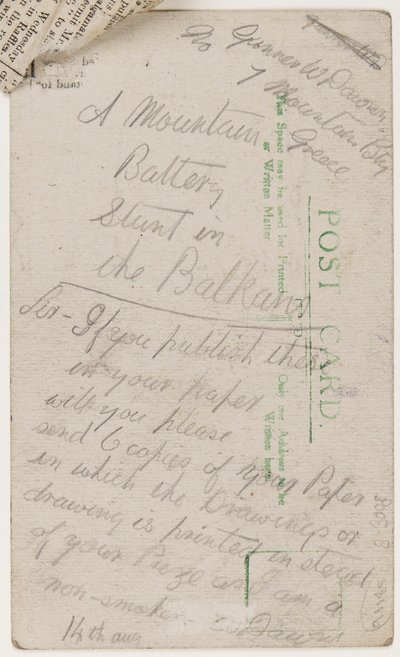 Gunner W Dawson
7 Mountain Bty
Greece
A Mountain
Battery
Stunt in
the Balkans
Sir - If you publish these
in your paper
will you please
send 6 copies of your Paper
in which the Drawings or
drawing is printed in stead
of your Prize as I am a
non-smoker. W Dawson
14th aug
POST CARD
This Space may be used for Printed
or Written Matter
Only the Address to be
Written here
Wednesday